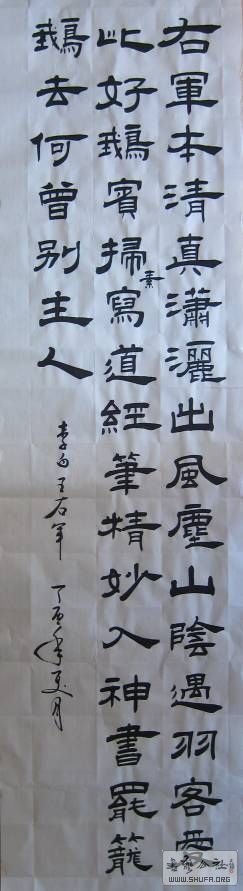 右軍本清真瀟灑出風塵山陰遇羽客愛
此好鵝賓掃素寫道經筆精妙入神書罷籠
鵝去何曾别主人
李白王右军 丁亥年夏月
WWW.SHUFA.ORG